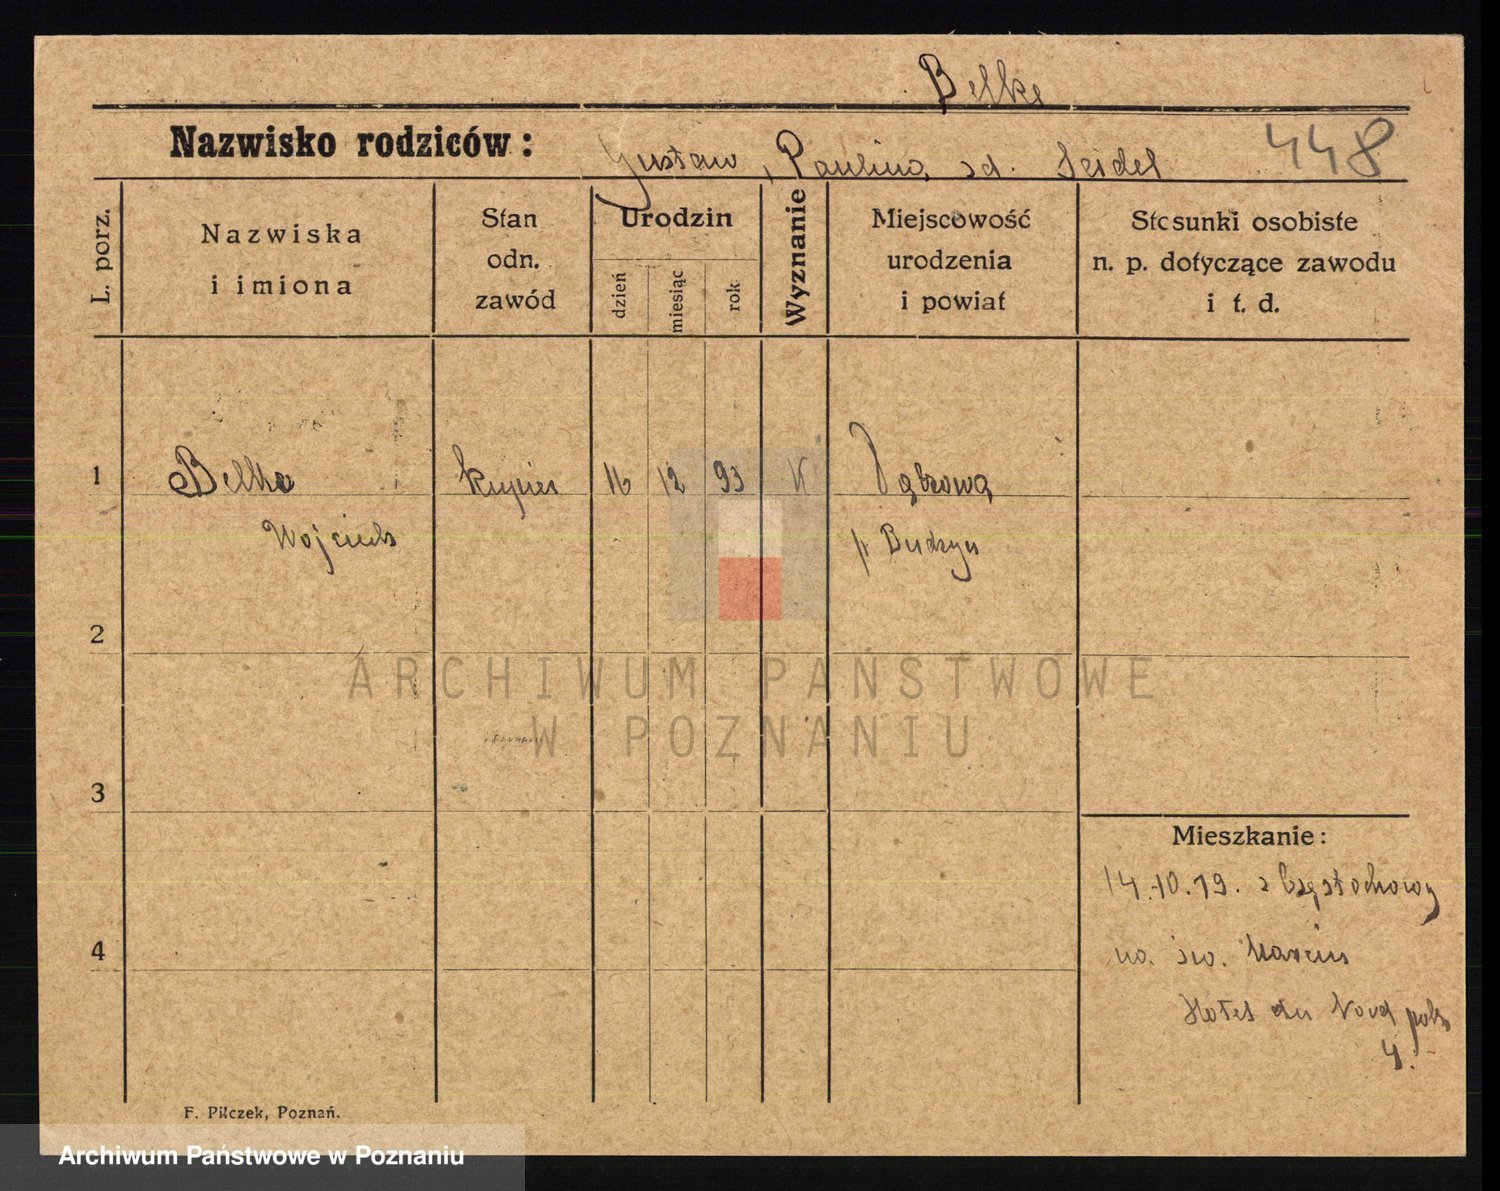 Belke
Nazwisko rodziców:
Gustaw, Paulina zd. Seidel
448
L. porz.
Nazwiska
i imiona
Stan
odn.
zawód
Urodzin
dzień
miesiąc
rok
Wyznanie
Miejscowość
urodzenia
i powiat
Stosunki osobiste
n. p. dotyczące zawodu
i t. d.
1
Belke
kupiec
16
12
93
K
Dąbrowa
Wojciech
p. Budzyń
2
3
4
Mieszkanie:
14.10.19. z Częstochowy
na św. Marcin
Hotel du Nord pok.
4.
F. Pilczek, Poznań.
ARCHIWUM PAŃSTWOWE
W POZNANIU
Archiwum Państwowe w Poznaniu